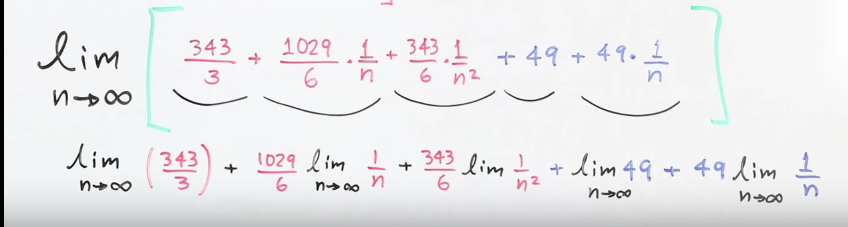 lim n→∞ [ 343/3 + 1029/6 · 1/n + 343/6 · 1/n² + 49 + 49 · 1/n ]
lim n→∞ (343/3) + 1029/6 lim n→∞ 1/n + 343/6 lim 1/n² + lim n→∞ 49 + 49 lim n→∞ 1/n